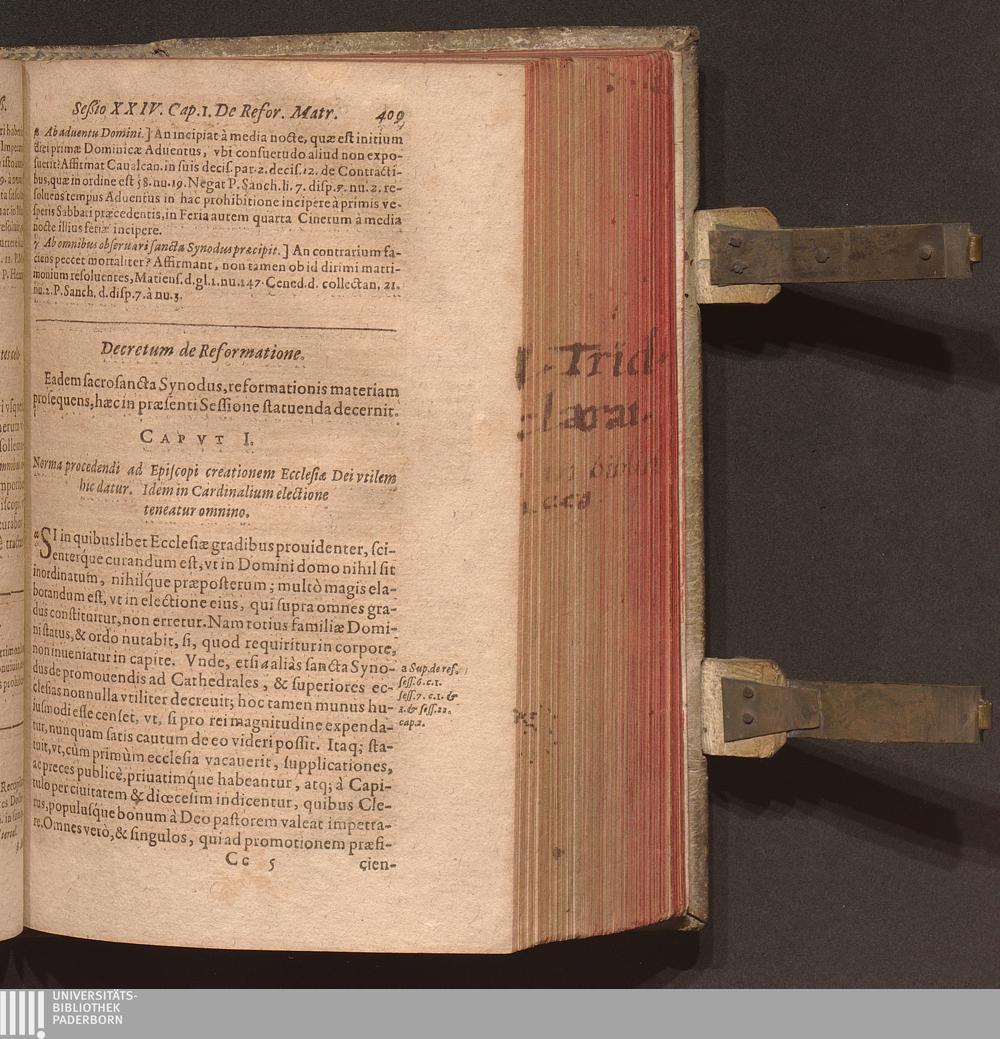 Sessio XXIV. Cap.I. De Refor. Matr. 409
Ab aduentu Domini.] An incipiat à media nocte, quæ est initium
diei primæ Dominicæ Aduentus, vbi consuetudo aliud non expo-
suerit? Affirmat Caualcan. in suis decis. par. 2. decis. 12. de Contracti-
bus, quæ in ordine est 58. nu. 19. Negat P. Sanch. li. 7. disp. 7. nu. 2. re-
soluens tempus Aduentus in hac prohibitione incipere à primis ve-
speris Sabbati præcedentis, in Feria autem quarta Cinerum à media
nocte illius feriæ incipere.
y Ab omnibus obseruari sancta Synodus præcipit.] An contrarium fa-
ciens peccet mortaliter? Affirmant, non tamen ob id dirimi matri-
monium resoluentes, Matiens. d. gl. 1. nu. 147. Cened. d. collectan. 21.
nu. 2. P. Sanch. d. disp. 7. à nu. 3.
Decretum de Reformatione.
Eadem sacrosancta Synodus, reformationis materiam
prosequens, hæc in præsenti Sessione statuenda decernit.
CAPVT I.
Norma procedendi ad Episcopi creationem Ecclesiæ Dei vtilem
hic datur. Idem in Cardinalium electione
teneatur omnino.
SI in quibuslibet Ecclesiæ gradibus prouidenter, sci-
enterque curandum est, vt in Domini domo nihil sit
inordinatum, nihilque præposterum; multò magis ela-
borandum est, vt in electione eius, qui supra omnes gra-
dus constituitur, non erretur. Nam totius familiæ Domi-
ni status, & ordo nutabit, si, quod requiritur in corpore,
non inueniatur in capite. Vnde, etsi a aliàs sancta Syno-
dus de promouendis ad Cathedrales, & superiores ec-
clesias nonnulla vtiliter decreuit; hoc tamen munus hu-
iusmodi esse censet, vt, si pro rei magnitudine expenda-
tur, nunquam satis cautum de eo videri possit. Itaq; sta-
tuit, vt, cùm primùm ecclesia vacauerit, supplicationes,
ac preces publicè, priuatimque habeantur, atq; à Capi-
tulo per ciuitatem & diœcesim indicentur, quibus Cle-
rus, populusque bonum à Deo pastorem valeat impetra-
re. Omnes verò, & singulos, qui ad promotionem præfi-
Cc 5 cien-
a Sup. de ref.
sess. 6. c. 1.
sess. 7. c. 1. &
2. & sess. 22.
cap. 2.
Trid.
UNIVERSITÄTS-
BIBLIOTHEK
PADERBORN